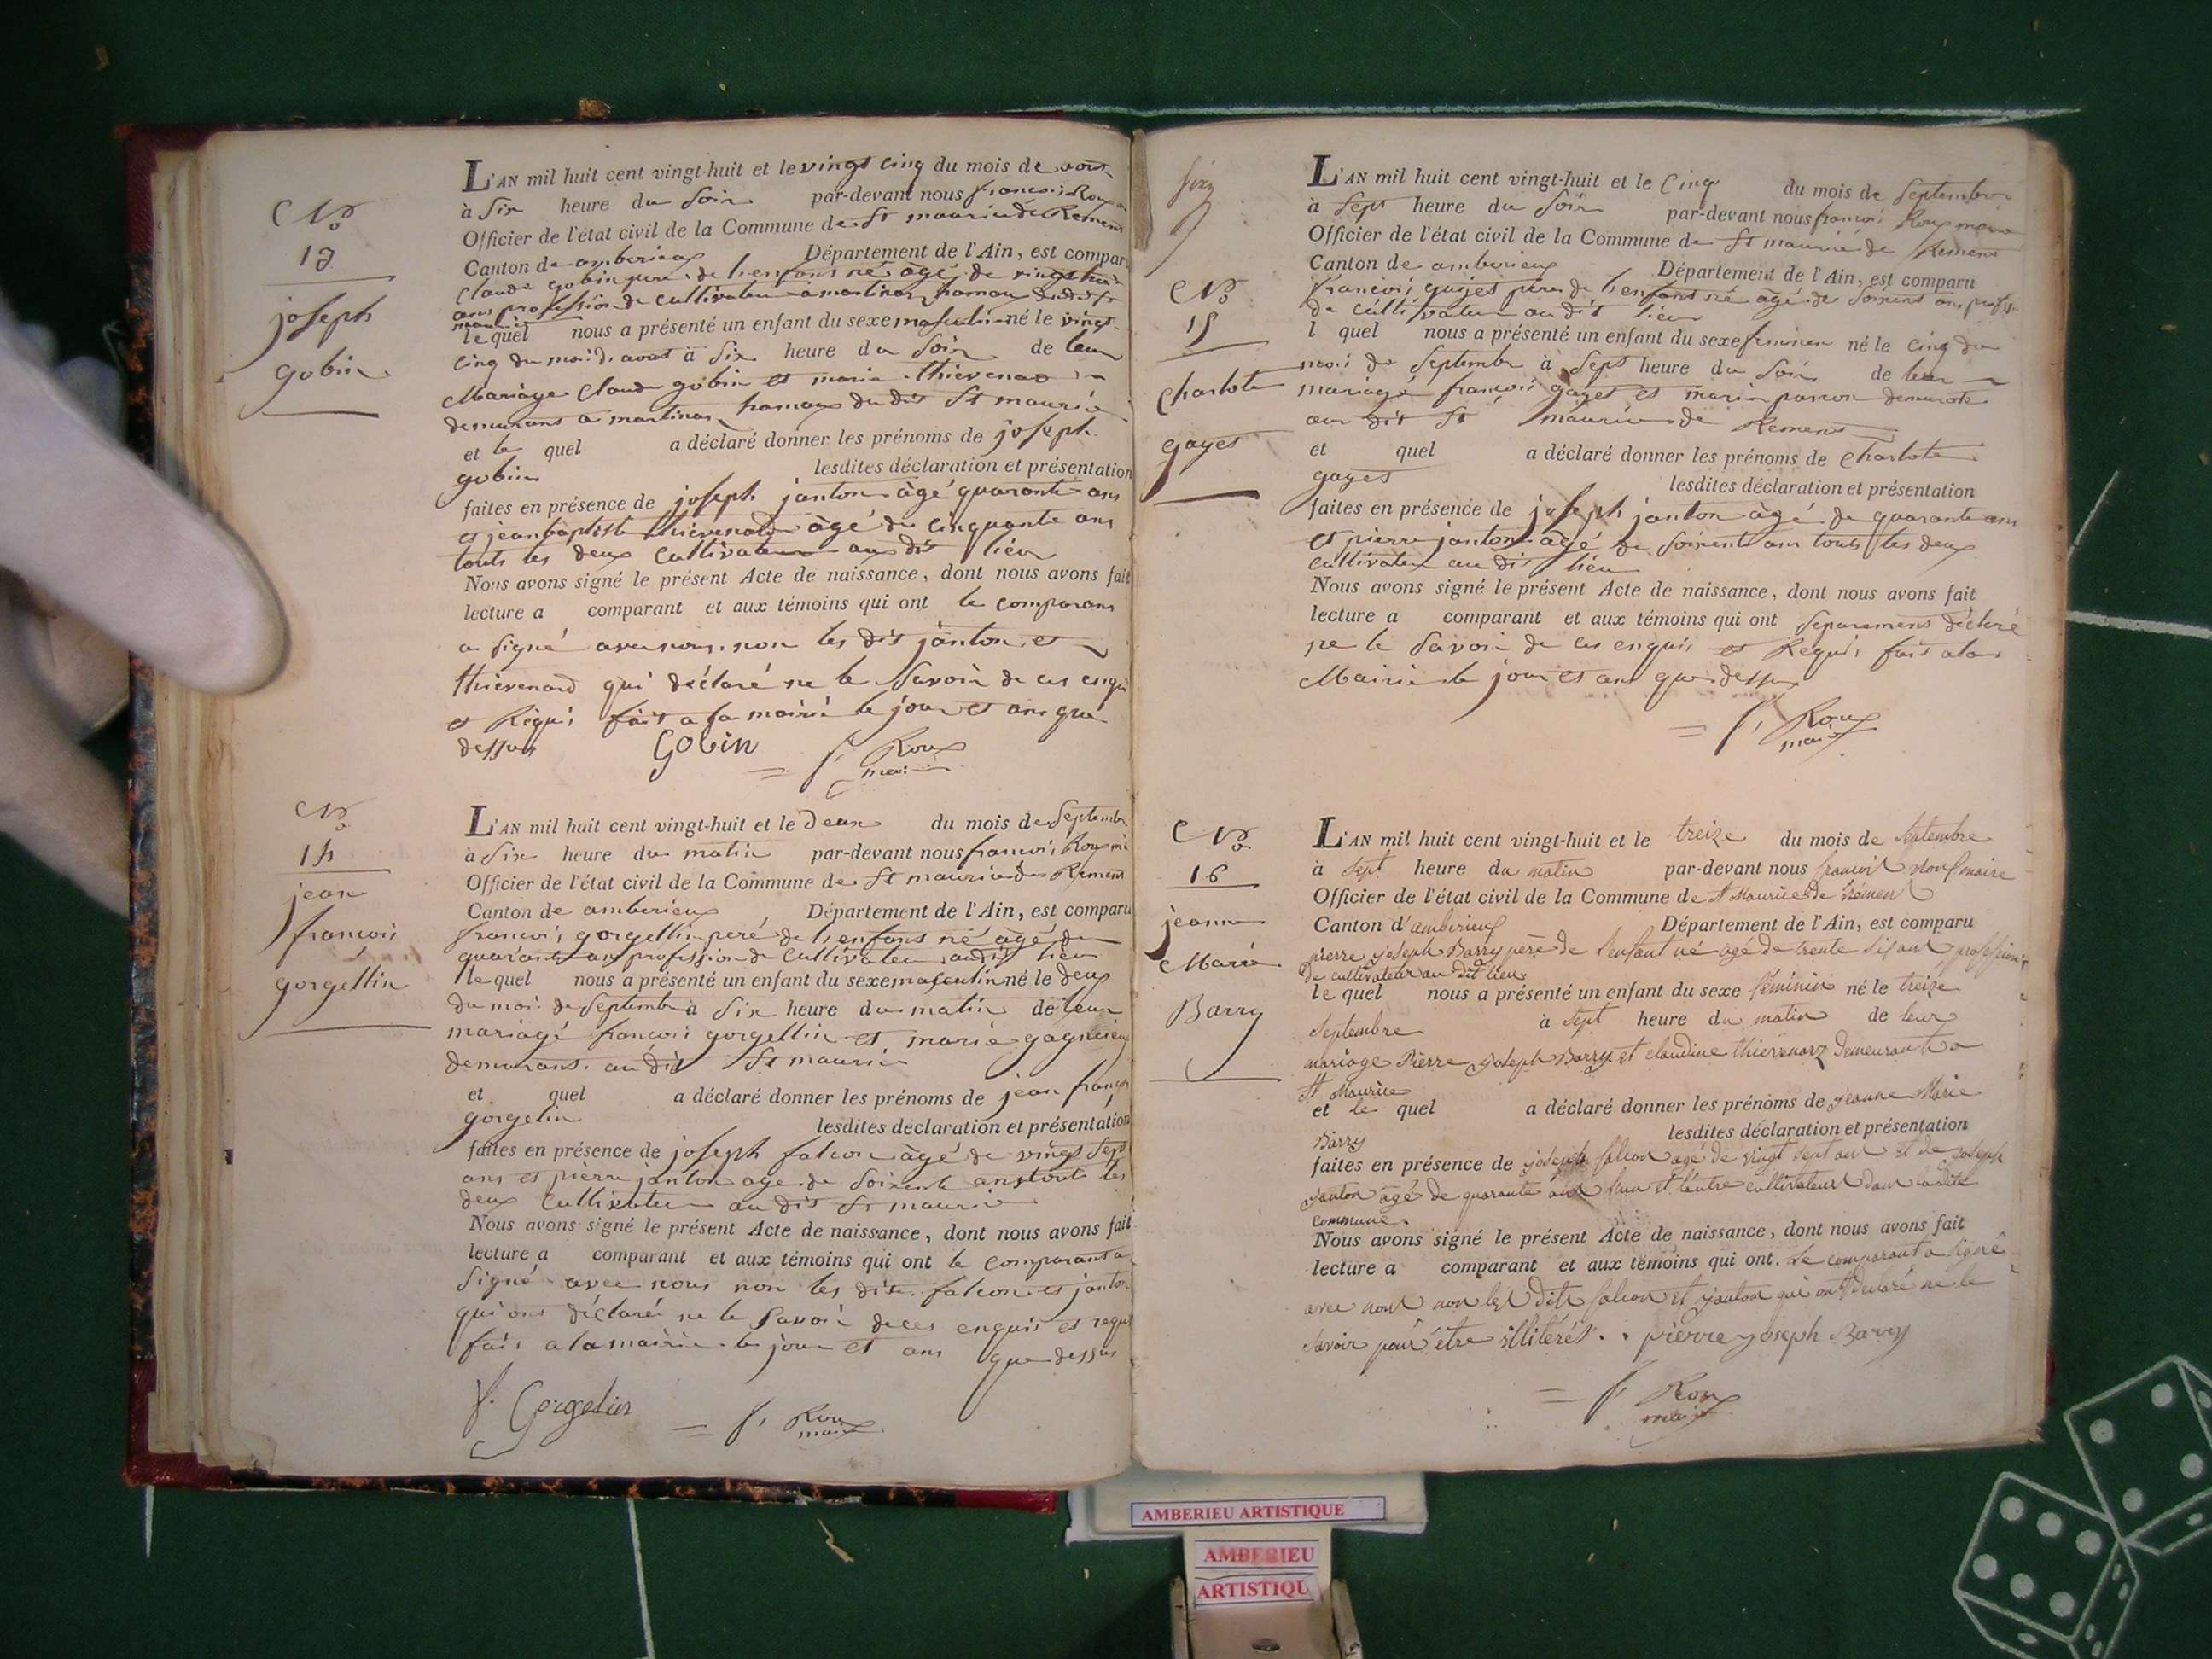 No
13
joseph
gobin
L'AN mil huit cent vingt-huit et le vingt cinq du mois de aout
à Six heure du Soir par-devant nous francois Roux
Officier de l'état civil de la Commune de St maurice de Remens
Canton de amberieux Département de l'Ain, est comparu
Claude gobin pere de lenfans né âgé de vingt huit
ans profession de cultivateur a martinaz hamau du dit St
maurice
le quel nous a présenté un enfant du sexe masculin né le vingt
cinq du mois d. aout à Six heure du Soir de leur
Mariage Claude gobin et marie thievenard
demurans a martinaz hamaux du dit St maurice
et le quel a déclaré donner les prénoms de joseph
gobin lesdites déclaration et présentation
faites en présence de joseph janton âgé quarante ans
et jean baptiste thievenard âgé de cinquante ans
touts les deux cultivateur au dit lieu
Nous avons signé le présent Acte de naissance, dont nous avons fait
lecture a comparant et aux témoins qui ont le comparans
a signé avec nous non les dit janton et
thievenard qui déclaré ne le Savoir de ces enqui
et Requi, fait a la mairie le jour et ans que
dessus Gobin = f. Roux
maire
No
14
jean
francois
gorgellin
L'AN mil huit cent vingt-huit et le Deux du mois de Septembr
à Six heure du matin par-devant nous francois Roux
Officier de l'état civil de la Commune de St maurice de Remens
Canton de amberieux Département de l'Ain, est comparu
francois gorgellin peré de lenfans né âgé de
quarante ans profession de Cultivateur audit lieu
le quel nous a présenté un enfant du sexe masculin né le deux
du moi de Septembr à Six heure du matin de leur
mariagé francois gorgellin et marie
demurans au dit St maurice
et quel a déclaré donner les prénoms de jean françoi
gorgelin lesdites déclaration et présentation
faites en présence de joseph falcon âgé de vingt Sept
ans et pierre janton age de Soixente ans tout les
deux Cultivateur au dit St maurice
Nous avons signé le présent Acte de naissance, dont nous avons fait
lecture a comparant et aux témoins qui ont le comparant a
Signé avec nous non les dit falcon et janton
qui ons déclaré ne le Savoir de ces enquis et requi
fait a la mairie le jour et ans que dessus
f. Gorgelin = f. Roux
maire
No
15
Charlote
gayet
L'AN mil huit cent vingt-huit et le Cinq du mois de Septembre
à Sept heure du Soir par-devant nous francois Roux maire
Officier de l'état civil de la Commune de St maurice de Remens
Canton de amberieux Département de l'Ain, est comparu
francois gayet pere de lenfant né âgé de Soixent ans profess
de cultivateur au dit lieu
l quel nous a présenté un enfant du sexe feminen né le cinq du
moi de Septembr à Sept heure du Soir de leur
mariagé francois gayet et marie demurants
au dit St maurice de Remens
et quel a déclaré donner les prénoms de Charlote
gayet lesdites déclaration et présentation
faites en présence de joseph janton âgé de quarante ans
et pierre janton agé de Soixente ans touts les deux
cultivateur au dit lieu
Nous avons signé le présent Acte de naissance, dont nous avons fait
lecture a comparant et aux témoins qui ont Séparemens déclaré
ne le Savoir de ces enquis et Requi, fait a la
Mairie le jour et ans que dessus
= f. Roux
maire
No
16
jeanne
Marie
Barry
L'AN mil huit cent vingt-huit et le treize du mois de Septembre
à Sept heure du matin par-devant nous francois Roux maire
Officier de l'état civil de la Commune de St Maurice de Rémens
Canton d'amberieux Département de l'Ain, est comparu
pierre joseph Barry père de l'enfant né agé de trente six ans profession
de cultivateur au dit lieu
le quel nous a présenté un enfant du sexe féminin né le treize
Septembre à Sept heure du matin de leur
mariage Pierre joseph Barry et claudine thievenarz Demeurant a
St Maurice
et le quel a déclaré donner les prénoms de jeanne Marie
Barry lesdites déclaration et présentation
faites en présence de joseph falcon agé de vingt sept ans et de joseph
janton âgé de quarante ans l'un et l'autre cultivateurs dans la dite
commune.
Nous avons signé le présent Acte de naissance, dont nous avons fait
lecture a comparant et aux témoins qui ont. Le comparant a signé
avec nous non les dits falcon et janton qui ont déclaré ne le
savoir pour être illitérés. pierre joseph Barry
= f. Roux
maire
AMBERIEU ARTISTIQUE
AMBERIEU
ARTISTIQU